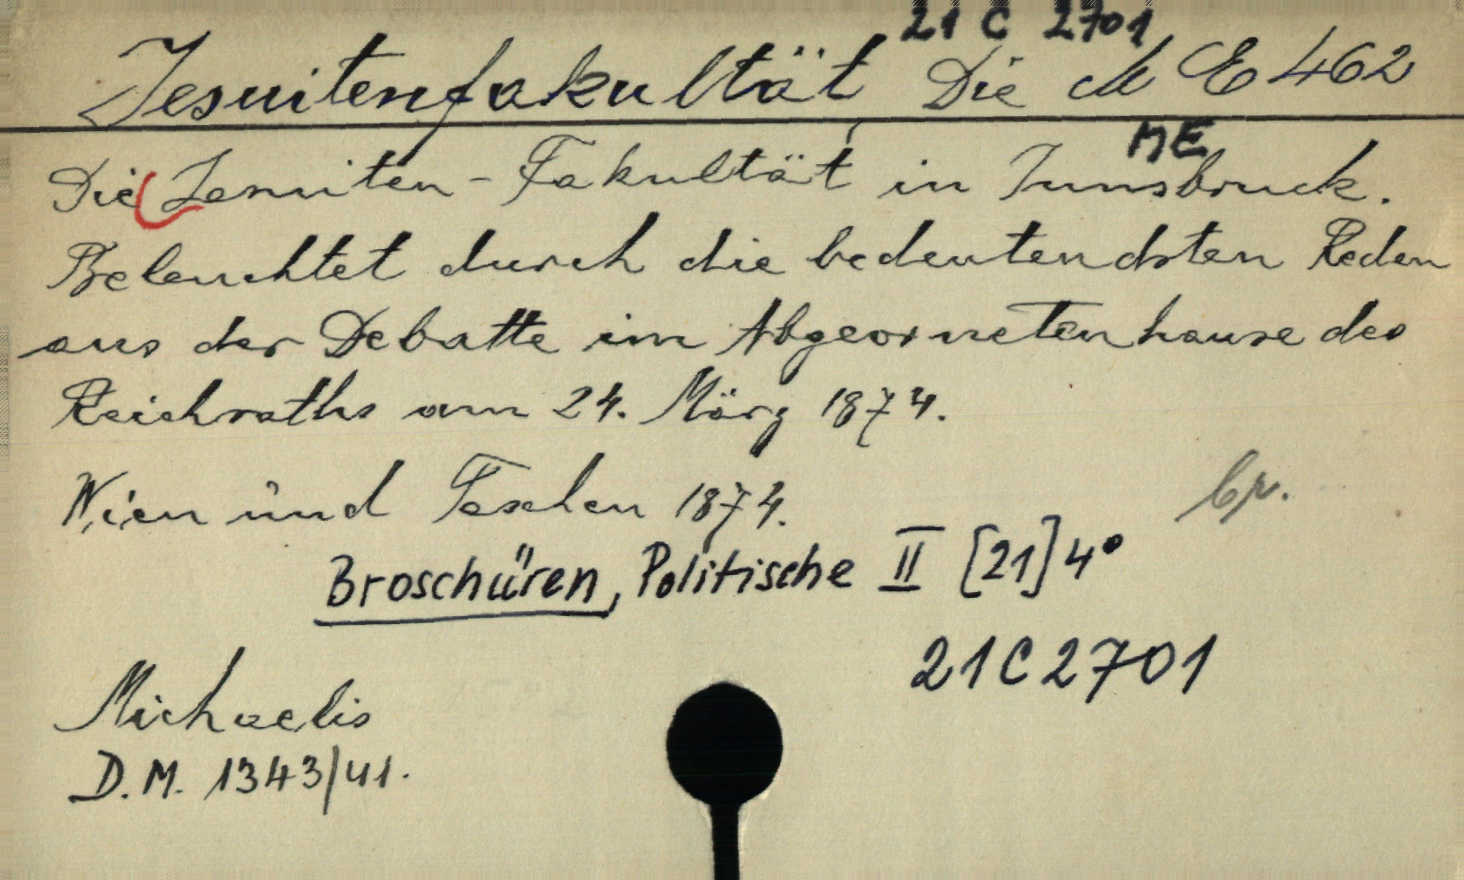 21 C 2701
Jesuitenfakultät, Die M E 462
ME
Die Jesuiten-Fakultät in Innsbruck.
Beleuchtet durch die bedeutendsten Reden
aus der Debatte im Abgeornetenhause des
Reichraths am 24. März 1874.
Wien und Teschen 1874.
br.
Broschüren, Politische II [21] 4°
21 C 2701
Michaelis
D. M. 1343/41.